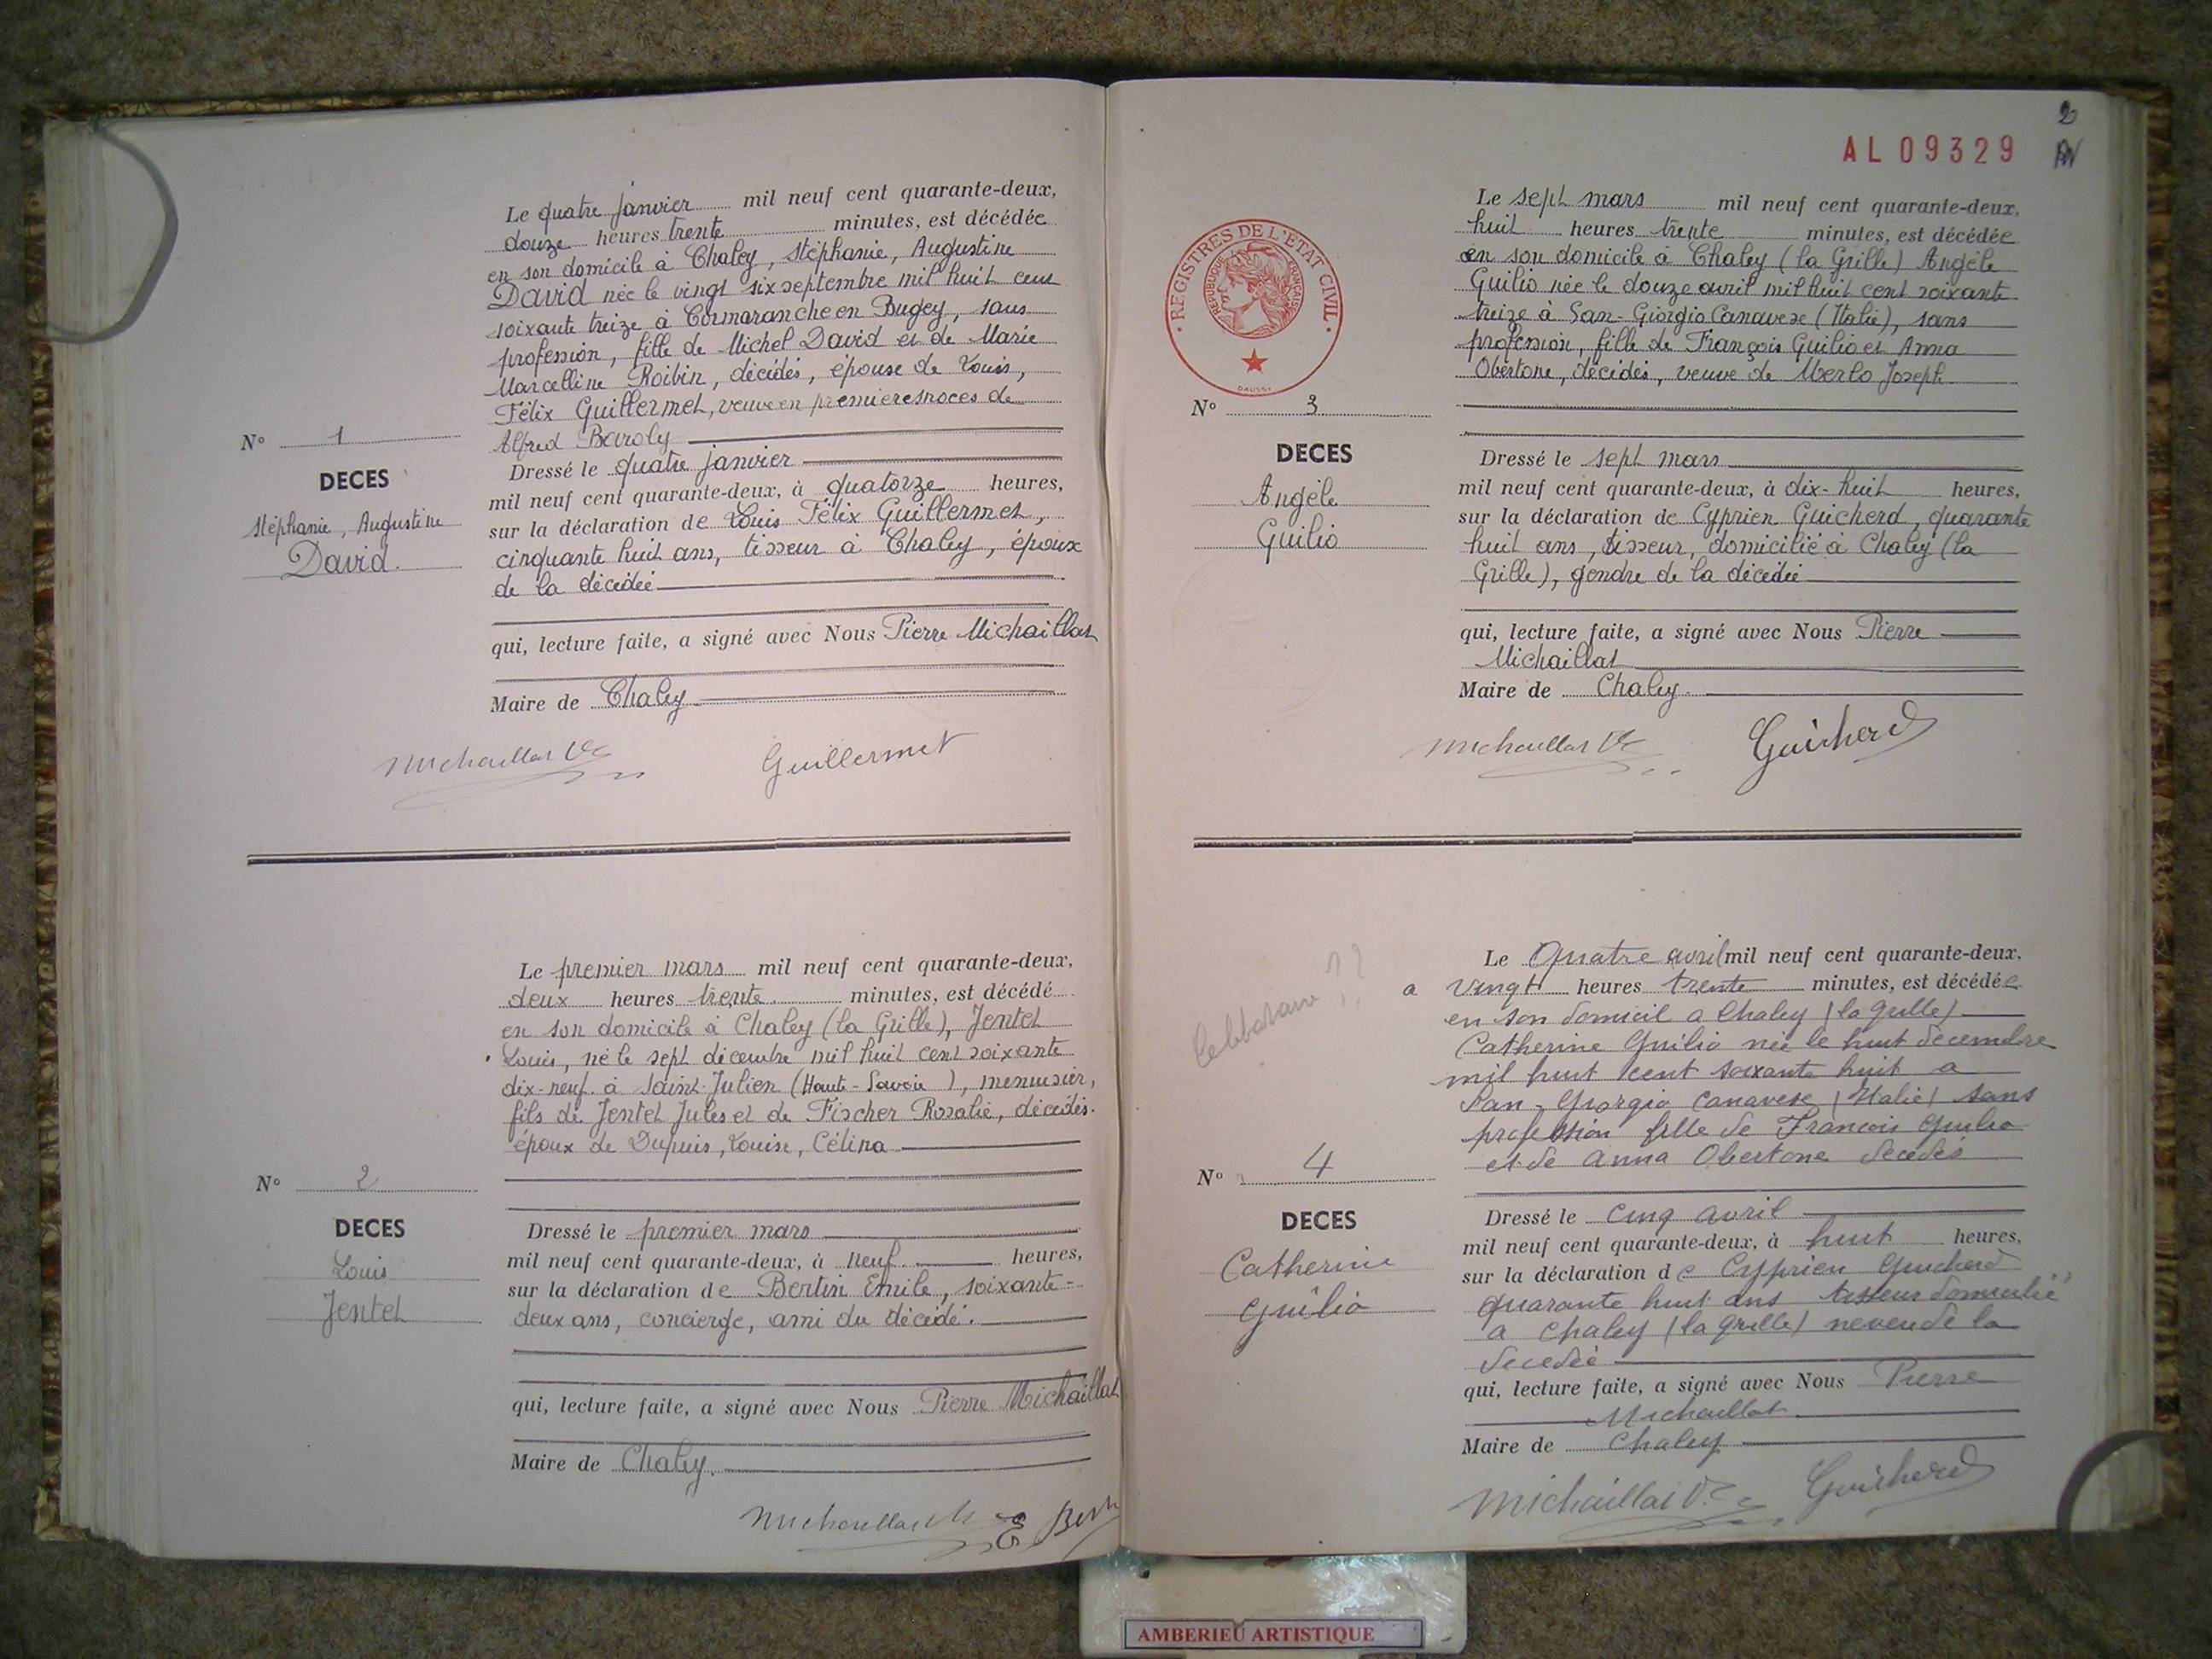 Le quatre janvier mil neuf cent quarante-deux,
douze heures trente minutes, est décédée
en son domicile à Chaley, Stéphanie, Augustine
David née le vingt six septembre mil huit cent
soixante treize à Cormaranche en Bugey, sans
profession, fille de Michel David et de Marie
Marcelline Roibin, décédés, épouse de Louis,
Félix Guillermet, veuve en premieres noces de
Alfred Baroly
N° 1
DECES
Stéphanie, Augustine
David.
Dressé le quatre janvier
mil neuf cent quarante-deux, à quatorze heures,
sur la déclaration de Louis Félix Guillermet,
cinquante huit ans, tisseur à Chaley, époux
de la décédée
qui, lecture faite, a signé avec Nous Pierre Michaillat
Maire de Chaley
Michaillat Guillermet
Le premier mars mil neuf cent quarante-deux,
deux heures trente minutes, est décédé
en son domicile à Chaley (la Grille), Jentet
Louis, né le sept décembre mil huit cent soixante
dix-neuf à Saint-Julien (Haute-Savoie), menuisier,
fils de Jentet Jules et de Fischer Rosalie, décédés.
époux de Dupuis, Louise, Célina
N° 2
DECES
Louis
Jentet
Dressé le premier mars
mil neuf cent quarante-deux, à neuf heures,
sur la déclaration de Bertin Emile, soixante-
deux ans, concierge, ami du décédé.
qui, lecture faite, a signé avec Nous Pierre Michaillat
Maire de Chaley.
Michaillat E Bert
2
AL 09329
REGISTRES DE L'ETAT CIVIL
REPUBLIQUE FRANÇAISE
DAUSSY
Le sept mars mil neuf cent quarante-deux,
huit heures trente minutes, est décédée
en son domicile à Chaley (la Grille) Angèle
Guilio née le douze avril mil huit cent soixante
treize à San-Giorgio Canavese (Italie), sans
profession, fille de François Guilio et Anna
Obertone, décédés, veuve de Merlo Joseph
N° 3
DECES
Angèle
Guilio
Dressé le sept mars
mil neuf cent quarante-deux, à dix-huit heures,
sur la déclaration de Cyprien Guicherd, quarante
huit ans, tisseur, domicilié à Chaley (la
Grille), gendre de la décédée
qui, lecture faite, a signé avec Nous Pierre
Michaillat
Maire de Chaley.
Michaillat Guicherd
Le Quatre avril mil neuf cent quarante-deux,
a vingt heures trente minutes, est décédée
en son domicil a Chaley (la grille)
Catherine Guilio née le huit decembre
mil huit cent soixante huit a
San-Giorgio Canavese (Italie) sans
profession fille de Francois Guilio
et de Anna Obertone decedés
N° 4
DECES
Catherine
Guilio
Dressé le cinq avril
mil neuf cent quarante-deux, à huit heures,
sur la déclaration de Cyprien Guicherd
quarante huit ans tisseur domicilié
a Chaley (la grille) neveu de la
decedée
qui, lecture faite, a signé avec Nous Pierre
Michaillat
Maire de Chaley
Michaillat Guicherd
AMBERIEU ARTISTIQUE